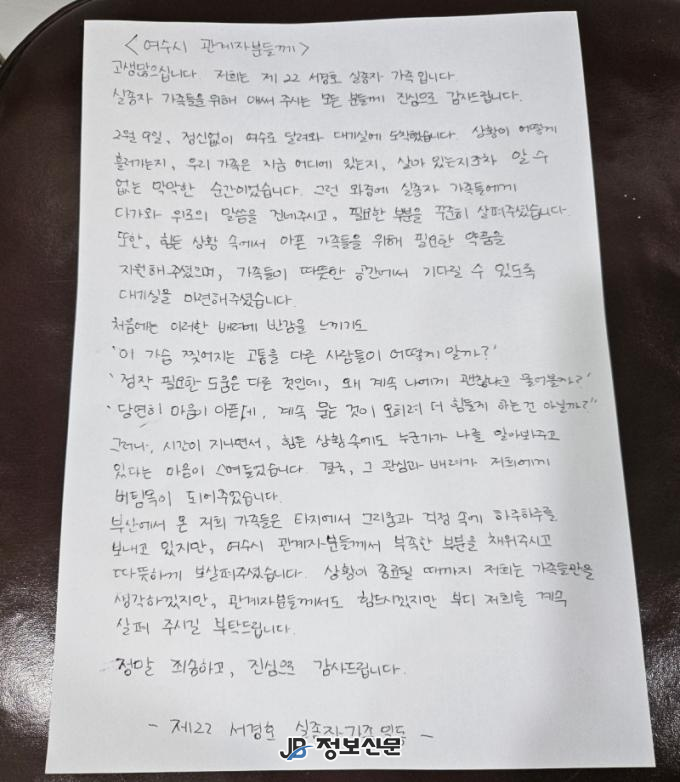 <여수시 관계자분들께>
고생많으십니다 저희는 제22 서경호 실종자 가족입니다.
실종자 가족들을 위해 애써 주시는 모든 분들께 진심으로 감사드립니다.
2월 9일, 정신없이 여수로 달려와 대기실에 도착했습니다. 상황이 어떻게
흘러가는지, 우리 가족은 지금 어디에 있는지, 살아 있는지조차 알 수
없는 막막한 순간이었습니다. 그런 와중에 실종자 가족들에게
다가와 위로의 말씀을 건네주시고, 필요한 부분을 꾸준히 살펴주셨습니다.
또한, 힘든 상황 속에서 아픈 가족들을 위해 필요한 약품을
지원해주셨으며, 가족들이 따뜻한 공간에서 기다릴 수 있도록
대기실을 마련해주셨습니다.
처음에는 이러한 배려에 반감을 느끼기도
'이 가슴 찢어지는 고통을 다른 사람들이 어떻게 알까?'
'정작 필요한 도움은 다른 것인데, 왜 계속 나에게 괜찮냐고 물어볼까?'
'당연히 마음이 아픈데, 계속 묻는 것이 오히려 더 힘들게 하는 건 아닐까?'
그러나, 시간이 지나면서, 힘든 상황 속에도 누군가가 나를 알아봐주고
있다는 마음이 스며들었습니다. 결국, 그 관심과 배려가 저희에게
버팀목이 되어주었습니다.
부산에서 온 저희 가족들은 타지에서 그리움과 걱정 속에 하루하루를
보내고 있지만, 여수시 관계자분들께서 부족한 부분을 채워주시고
따뜻하게 보살펴주셨습니다. 상황이 종료될 때까지 저희는 가족들만을
생각하겠지만, 관계자분들께서도 힘드시겠지만 부디 저희를 계속
살펴 주시길 부탁드립니다.
정말 죄송하고, 진심으로 감사드립니다.
- 제22 서경호 실종자 가족 일동 -
JB 정보신문